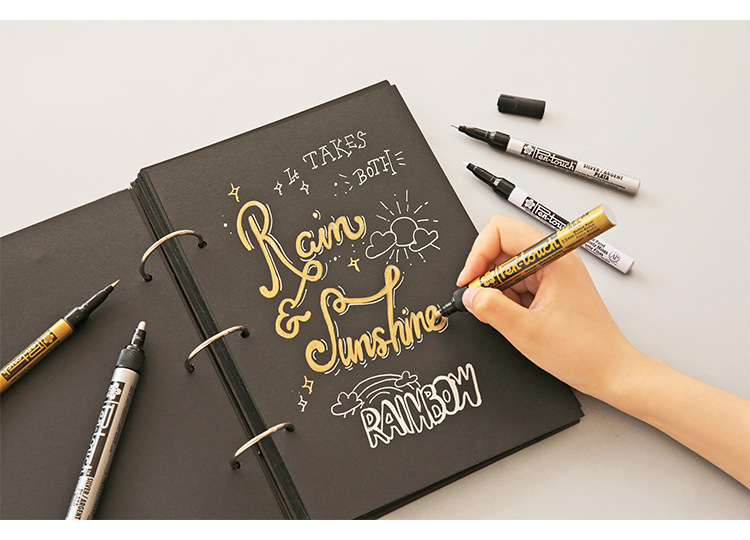 It TAKES
BOTH
Rain
& Sunshine
RAINBOW
Pen-touch
SILVER/ARGENT
PLATA
Pen-touch
Pen-touch
Pen-touch
Pen-touch
SILVER/ARGENT